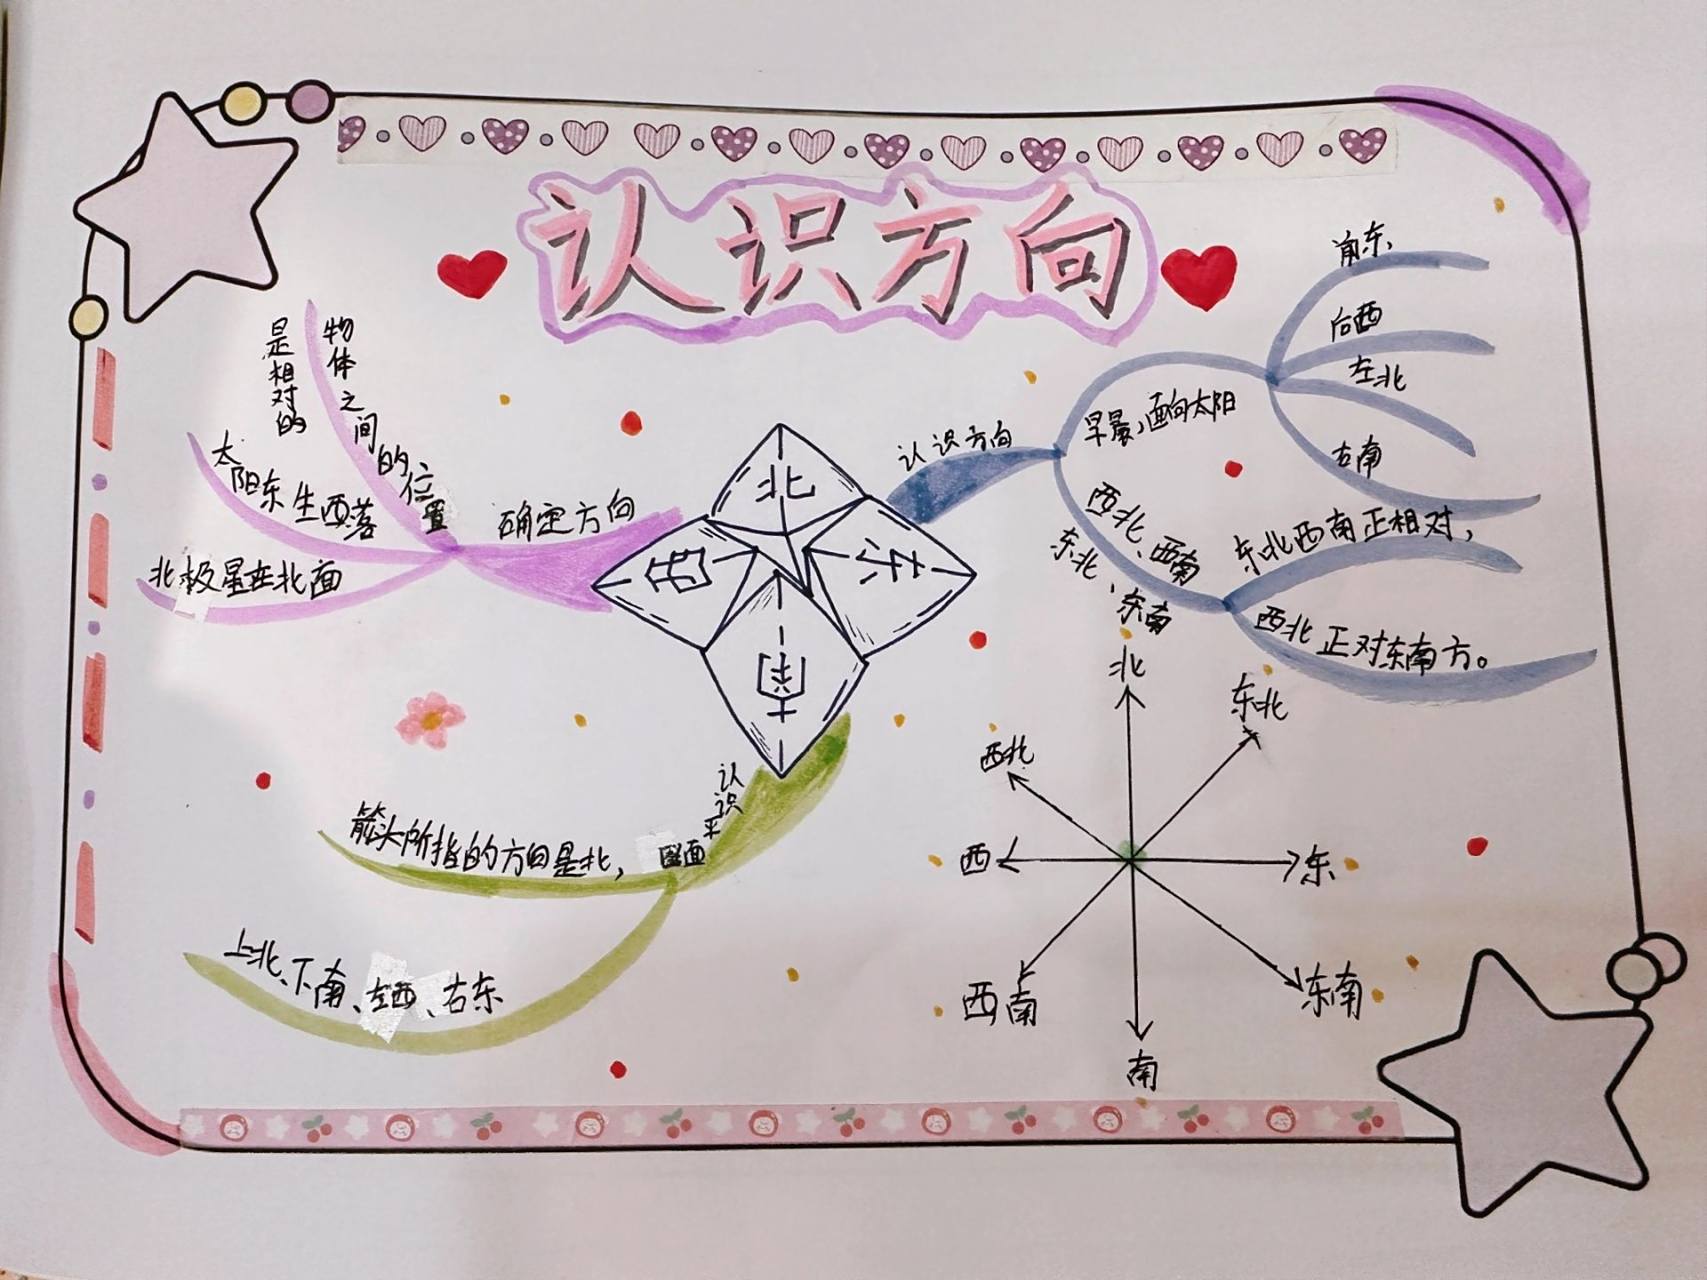 认识方向
确定方向
物体之间的位置
是相对的
太阳东生西落
北极星在北面
认识方向
早晨,面向太阳
前东
后西
左北
右南
西北、西南
东北、东南
东北西南正相对,
西北正对东南方。
北
西
东
南
认识平
面图
箭头所指的方向是北,
上北、下南、左西、右东
北
东北
东
东南
南
西南
西
西北